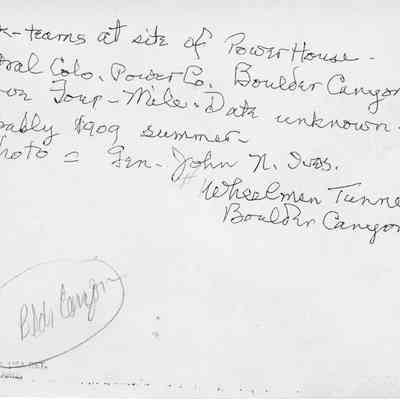 k-teams at site of PowerHouse -
tral Colo. Power Co. Boulder Canyon
ove Four-Mile. Date unknown -
bably 1909 summer -
hoto = Gen. John N.
Wheelmen Tunne
Boulder Canyon
Bldr Canyon